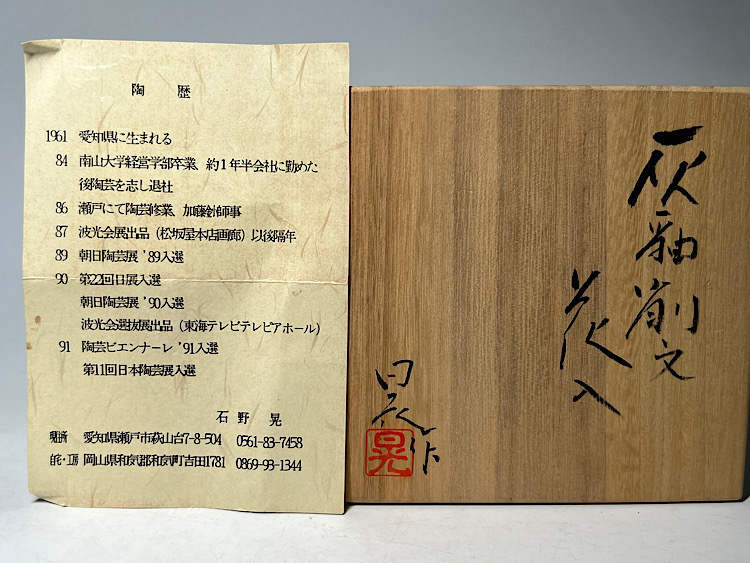 陶 歴
1961 愛知県に生まれる
84 南山大学経営学部卒業、約1年半会社に勤めた
後陶芸を志し退社
86 瀬戸にて陶芸修業、加藤釥師事
87 波光会展出品（松坂屋本店画廊）以後隔年
89 朝日陶芸展 '89入選
90 第22回日展入選
朝日陶芸展 '90入選
波光会選抜展出品（東海テレビテレピアホール）
91 陶芸ビエンナーレ '91入選
第11回日本陶芸展入選
石 野 晃
愛知県瀬戸市萩山台7-8-504 0561-83-7458
自宅・工房 岡山県和気郡和気町吉田1781 0869-93-1344
灰釉削文
花入
晃作
晃